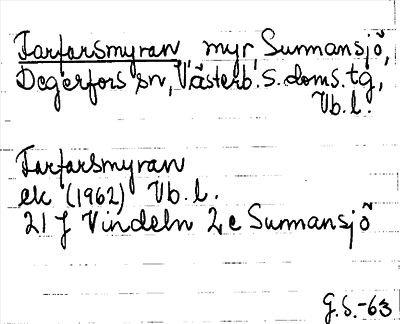 Farfarsmyran, myr, Surmansjö,
Degerfors sn, Västerb. s. doms. tg,
Vb. l.
Farfarsmyran
ek (1962) Vb. l.
21 J Vindeln 2 c Surmansjö
G.S.-63